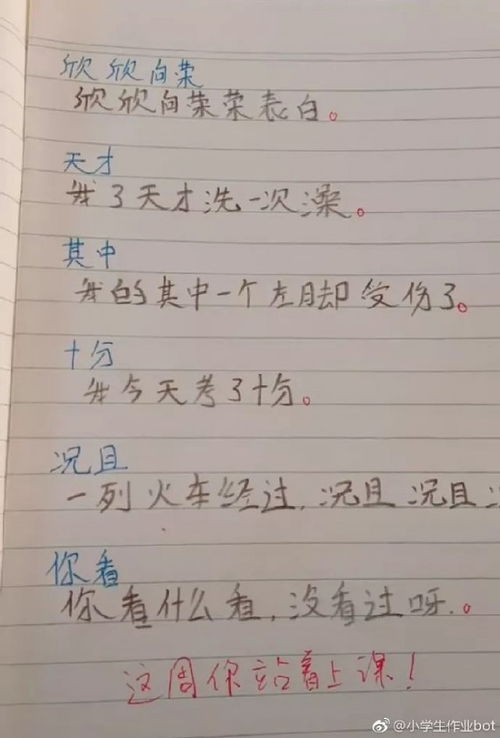 欣欣向荣
欣欣向荣荣表白。
天才
我3天才洗一次澡。
其中
我的其中一个左脚受伤了。
十分
我今天考了十分。
况且
一列火车经过,况且况且
你看
你看什么看,没看过呀。
这周你站着上课!
@小学生作业bot